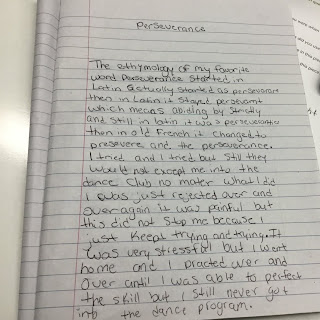 Perseverance
The ethymology of my favorite
word Perseverance started in
Latin actually started as perseverare
then in Latin it stayed perseverant
which means abiding by strictly
and still in latin it was perseverantia
then in old French it changed to
presevere and the perseverance.
I tried and I tried but still they
would not except me into the
dance club no mater what I did
I was just rejected over and
over again it was painful but
this did not stop me because I
just keept trying and trying. It
was very stressful but I went
home and I practed over and
over until I was able to perfect
the skill but I still never got
into the dance program.